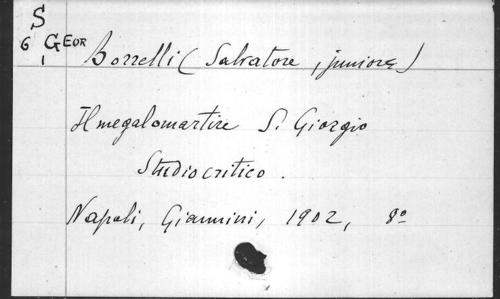 S
6 GEOR
1
Borrelli (Salvatore, juniore)
Il megalomartire S. Giorgio
Studio critico.
Napoli, Giannini, 1902, 8º